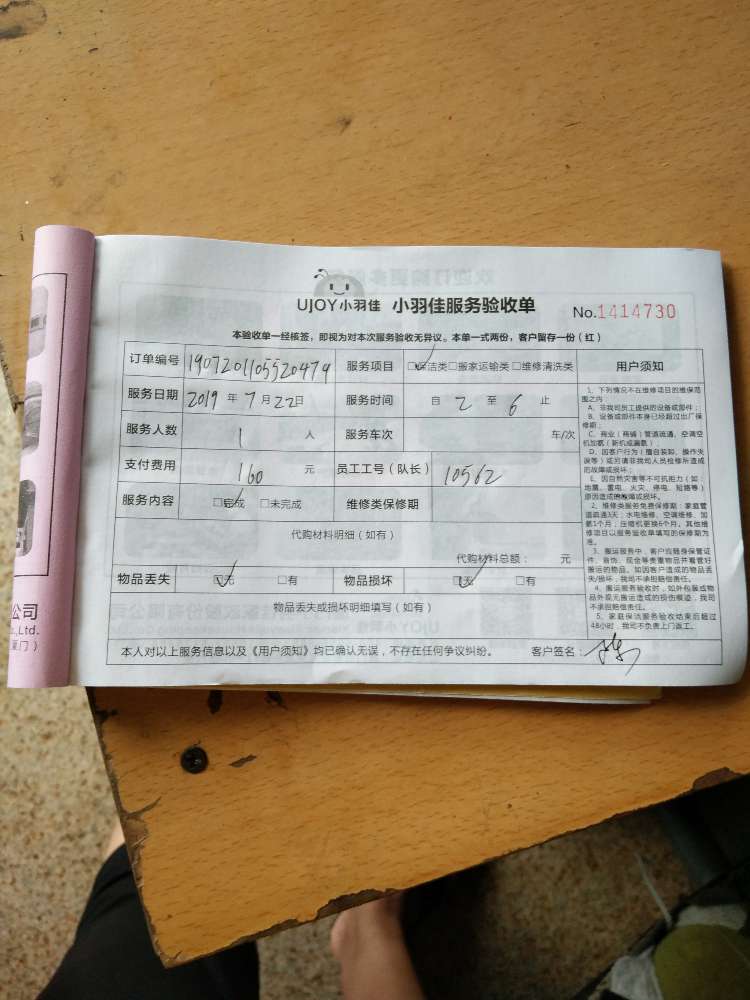 UJOY小羽佳 小羽佳服务验收单 No.1414730
本验收单一经核签，即视为对本次服务验收无异议。本单一式两份，客户留存一份（红）
订单编号 1907201105520479 服务项目 □保洁类□搬家运输类□维修清洗类 用户须知
服务日期 2019年7月22日 服务时间 自2至6止
服务人数 1人 服务车次 车/次
支付费用 160元 员工工号（队长） 10562
服务内容 □完成 □未完成 维修类保修期
代购材料明细（如有）
代购材料总额： 元
物品丢失 □无 □有 物品损坏 □无 □有
物品丢失或损坏明细填写（如有）
本人对以上服务信息以及《用户须知》均已确认无误，不存在任何争议纠纷。 客户签名：
1、下列情况不在维修项目的维保范
围之内
A、非我司员工提供的设备或部件；
B、设备或部件本身已经超过出厂保
修期；
C、商业（商铺）管道疏通，空调空
机加氟（新机或漏氟）；
D、因客户行为（擅自装卸、操作失
误等）或另请非我司人员检修所造成
的故障或损坏；
E、因自然灾害等不可抗拒力（如：
地震、雷电、火灾、停电、短路等）
原因造成的故障或损坏。
2、维修类服务免费保修期：家庭管
道疏通3天；水电维修、空调维修、加
氟1个月；压缩机更换6个月。其他维
修项目以服务验收单填写的保修期为
准。
3、搬运服务中，客户应随身保管证
件、首饰、现金等贵重物品并看管好
搬运的物品。如因客户造成的物品丢
失/损坏，我司不承担赔偿责任。
4、搬运服务验收时，如外包装或物
品外观无搬运造成的损伤痕迹，我司
不承担赔偿责任。
5、家庭保洁服务验收结束后超过
48小时，我司不负责上门返工。
公司
.,Ltd.
厦门）